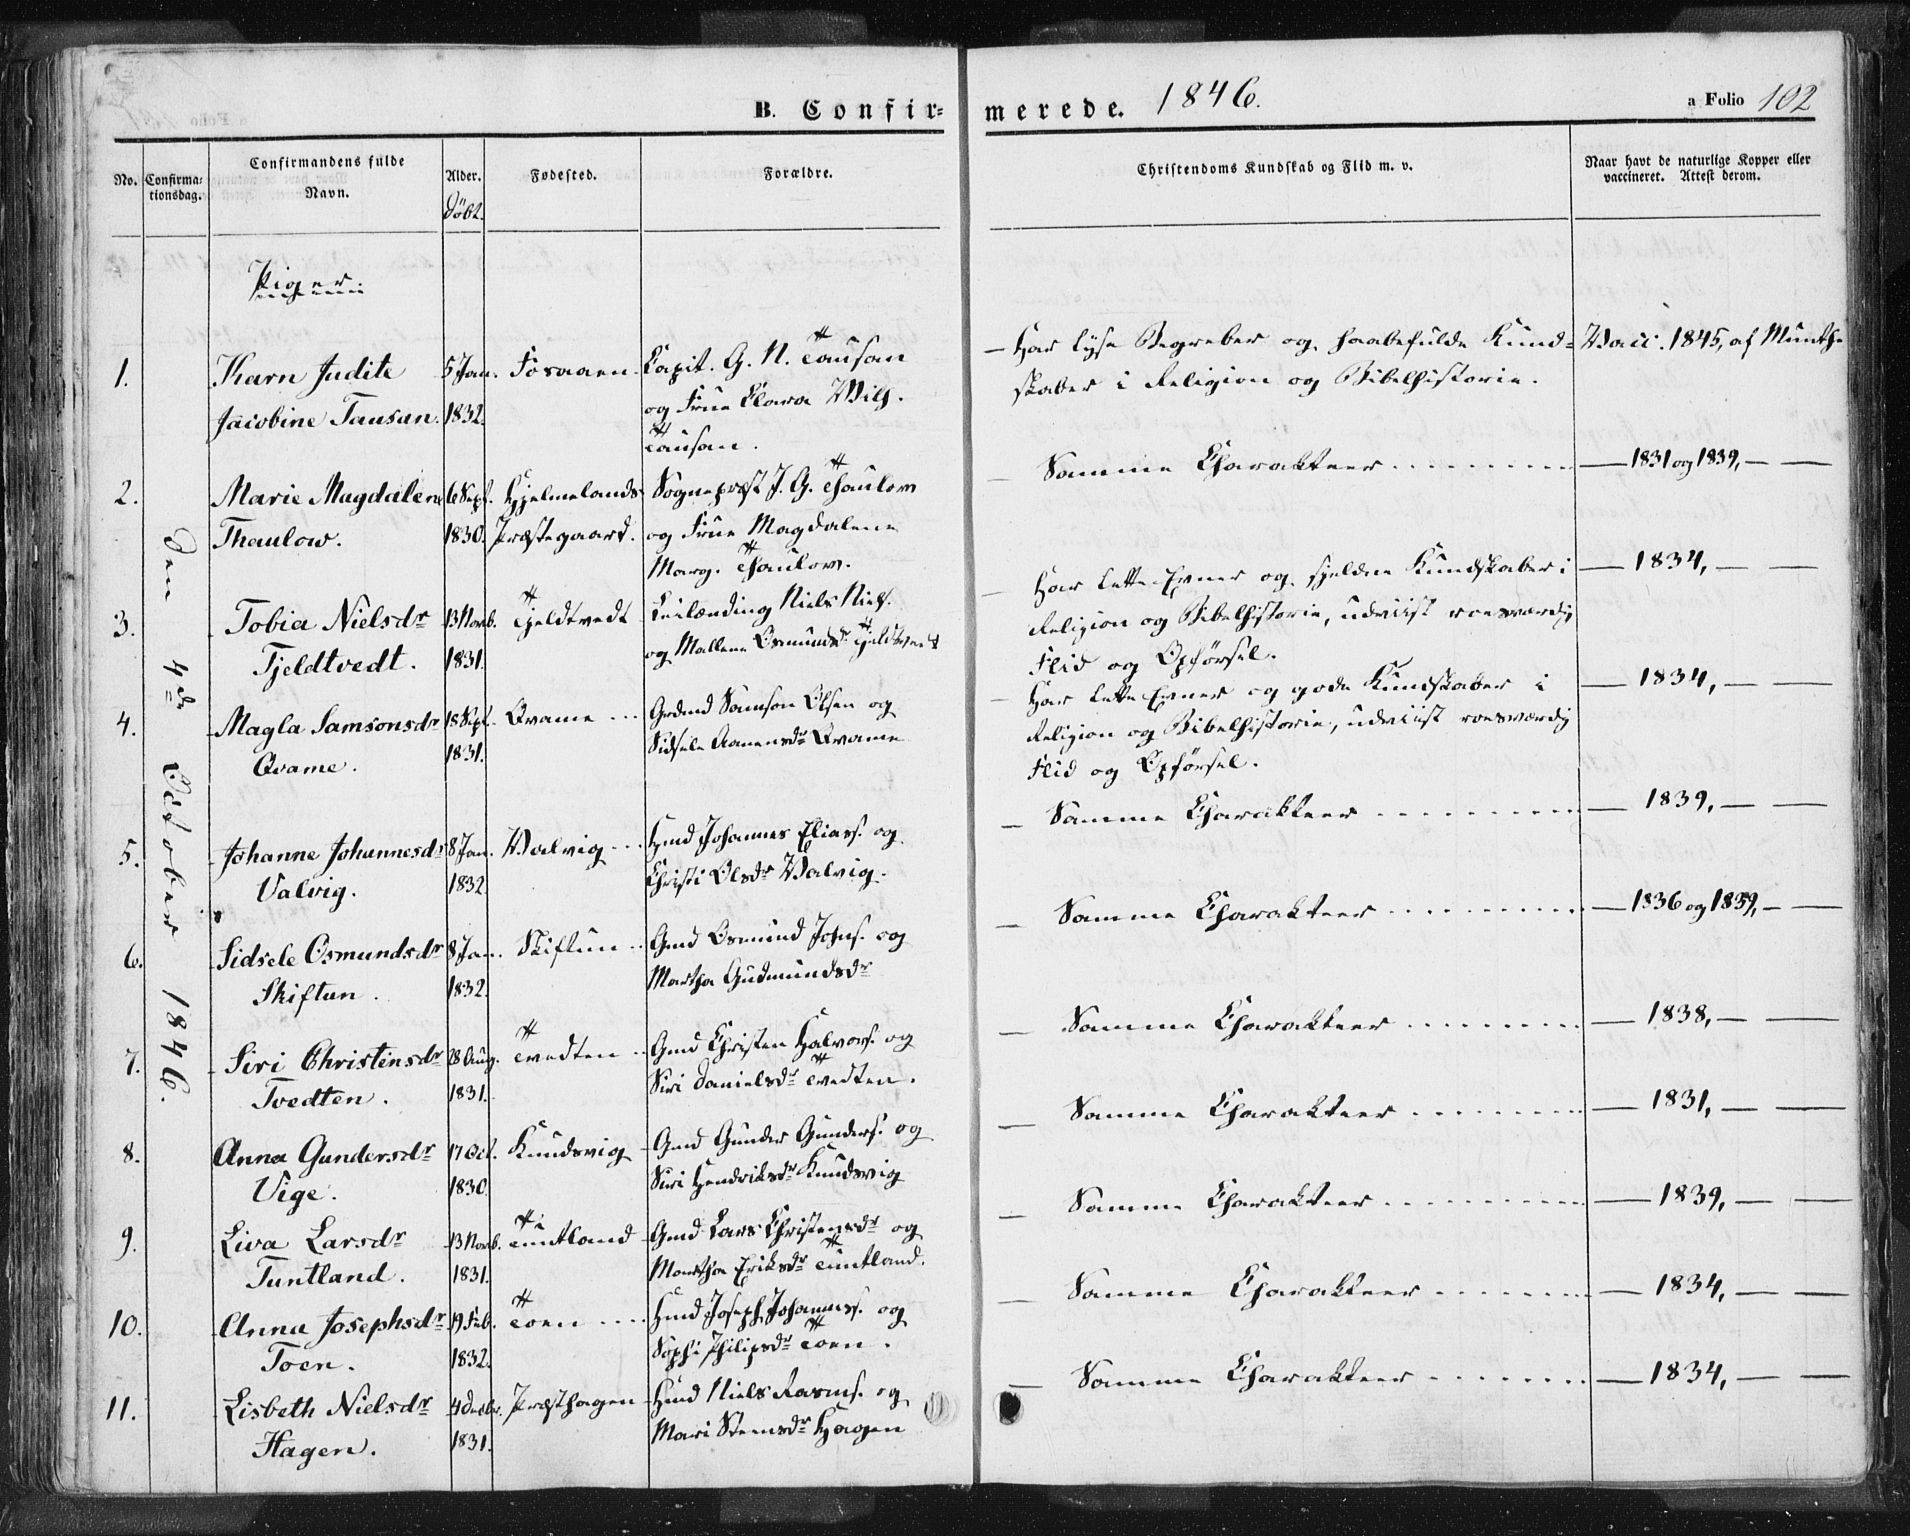 B. Confir-
merede. 1846.
a Folio 102
No.
Confirma-
tionsdag.
Confirmandens fulde
Navn.
Alder.
döbt.
Fødested.
Forældre.
Christendoms Kundskab og Flid m. v.
Naar havt de naturlige Kopper eller
vaccineret. Attest derom.
Piger.
den 4de October 1846.
1.
Karn Judite
Jacobine Tausan.
5 Jan.
1832.
Fosaaen
Capit. G. N. Tausan
og Frue Clara Wilh.
Tausan.
– Har lyse Begreber og haabefulde Kund-
skaber i Religion og Bibelhistorie.
Vacc. 1845, af Munthe
2.
Marie Magdalene
Thaulow.
6 Sept.
1830.
Hjelmelands
Præstegaard.
Sognepræst J. G. Thaulow
og Frue Magdalene
Marg. Thaulow.
– Samme Charakteer
— 1831 og 1839, — —
3.
Tobia Nielsdr
Tjeldtvedt.
13 Novb.
1831.
Tjeldtvedt
Leilænding Niels Niels.
og Mallene Osmundsdr Tjeldtvedt
– Har lette Evner og sjeldne Kundskaber i
Religion og Bibelhistorie, udviist roesværdig
Flid og Opførsel.
— 1834, — —
4.
Magla Samsonsdr
Qvame.
18 Sept.
1831.
Qvame
Grdmd Samson Olsen og
Sidsele Aanensdr Qvame
– Har lette Evner og gode Kundskaber i
Religion og Bibelhistorie, udviist roesværdig
Flid og Opførsel.
— 1834, — —
5.
Johanne Johannesdr
Valvig.
8 Jan.
1832
Valvig
Hmd Johannes Elias. og
Christi Olsdr Valvig.
– Samme Charakteer
— 1839, — —
6.
Sidsele Osmundsdr
Skiftun.
8 Jan.
1832.
Skiftun
Gmd Osmund Johns. og
Martha Gudmundsdr
– Samme Charakteer
— 1836 og 1839, — —
7.
Siri Christensdr
Tvedten.
28 Aug.
1831.
Tvedten
Gmd Christen Halvors. og
Siri Danielsdr Tvedten.
– Samme Charakteer
— 1838, — —
8.
Anna Gundersdr
Vige.
17 Oct.
1830.
Knudsvig
Gmd Gunder Gunders. og
Siri Hendriksdr Knudsvig
– Samme Charakteer
— 1831, — —
9.
Liva Larsdr
Tuntland.
13 Novb.
1831.
Tuntland
Gmd Lars Christensdr og
Martha Eriksdr Tuntland.
– Samme Charakteer
— 1839, — —
10.
Anna Josephsdr
Toen.
19 Feb.
1832.
Toen
Hmd Joseph Johannes. og
Sophi Philipsdr Toen.
– Samme Charakteer
— 1834, — —
11.
Lisbeth Nielsdr
Hagen.
4 Decbr.
1831.
Præsthagen
Hmd Niels Rasms. og
Mari Steensdr Hagen
– Samme Charakteer
— 1834, — —